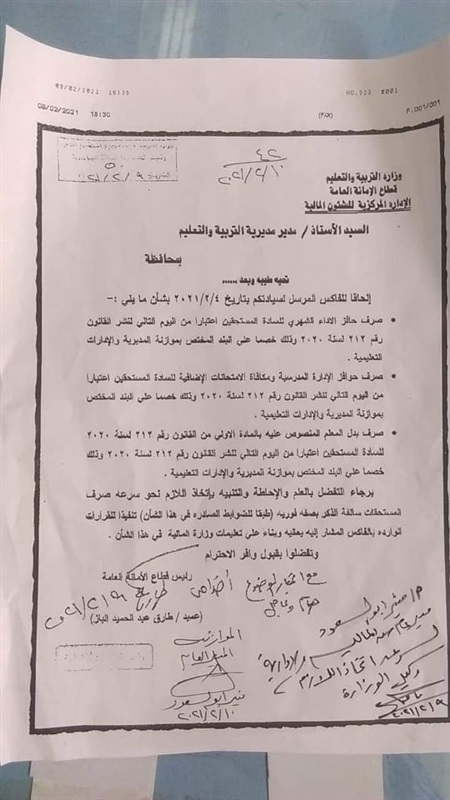 09/02/2021 18:35 NO.522 #001
09/02/2021 18:30 (FAX) P.001/001
٤٢
٢٠٢١/٢/١٠
وزارة التربية والتعليم
قطاع الامانة العامة
الإدارة المركزية للشئون المالية
السيد الأستاذ / مدير مديرية التربية والتعليم
بمحافظة
تحيه طيبه وبعد ......
إلحاقا للفاكس المرسل لسيادتكم بتاريخ ٢٠٢١/٢/٤ بشأن ما يلي :-
• صرف حافز الاداء الشهري للسادة المستحقين اعتباراً من اليوم التالي للنشر القانون
رقم ٢١٢ لسنة ٢٠٢٠ وذلك خصما علي البند المختص بموازنة المديرية والإدارات
التعليمية .
• صرف حوافز الإدارة المدرسية ومكافأة الامتحانات الإضافية للسادة المستحقين اعتباراً
من اليوم التالي للنشر القانون رقم ٢١٢ لسنة ٢٠٢٠ وذلك خصما علي البند المختص
بموازنة المديرية والإدارات التعليمية .
• صرف بدل المعلم المنصوص عليه بالمادة الاولي من القانون رقم ٢١٢ لسنة ٢٠٢٠
للسادة المستحقين اعتباراً من اليوم التالي للنشر القانون رقم ٢١٢ لسنة ٢٠٢٠ وذلك
خصما علي البند المختص بموازنة المديرية والإدارات التعليمية .
برجاء التفضل بالعلم والإحاطة والتنبيه بإتخاذ اللازم نحو سرعه صرف
المستحقات سالفة الذكر بصفه فوريه (طبقا للضوابط الصادره في هذا الشأن) تنفيذا للقرارات
الوارده بالفاكس المشار إليه بعاليه وبناء علي تعليمات وزارة المالية في هذا الشأن .
وتفضلوا بقبول وافر الاحترام
رئيس قطاع الأمانة العامة
عميد / طارق عبد الحميد الباز)
٢٠٢١/٢/٩
مع اعتبار الموضوع
هام وعاجل
وكيل الوزارة
٢٠٢١/٢/٩
الموازنة
المدير العام
٢٠٢١/٢/١٠